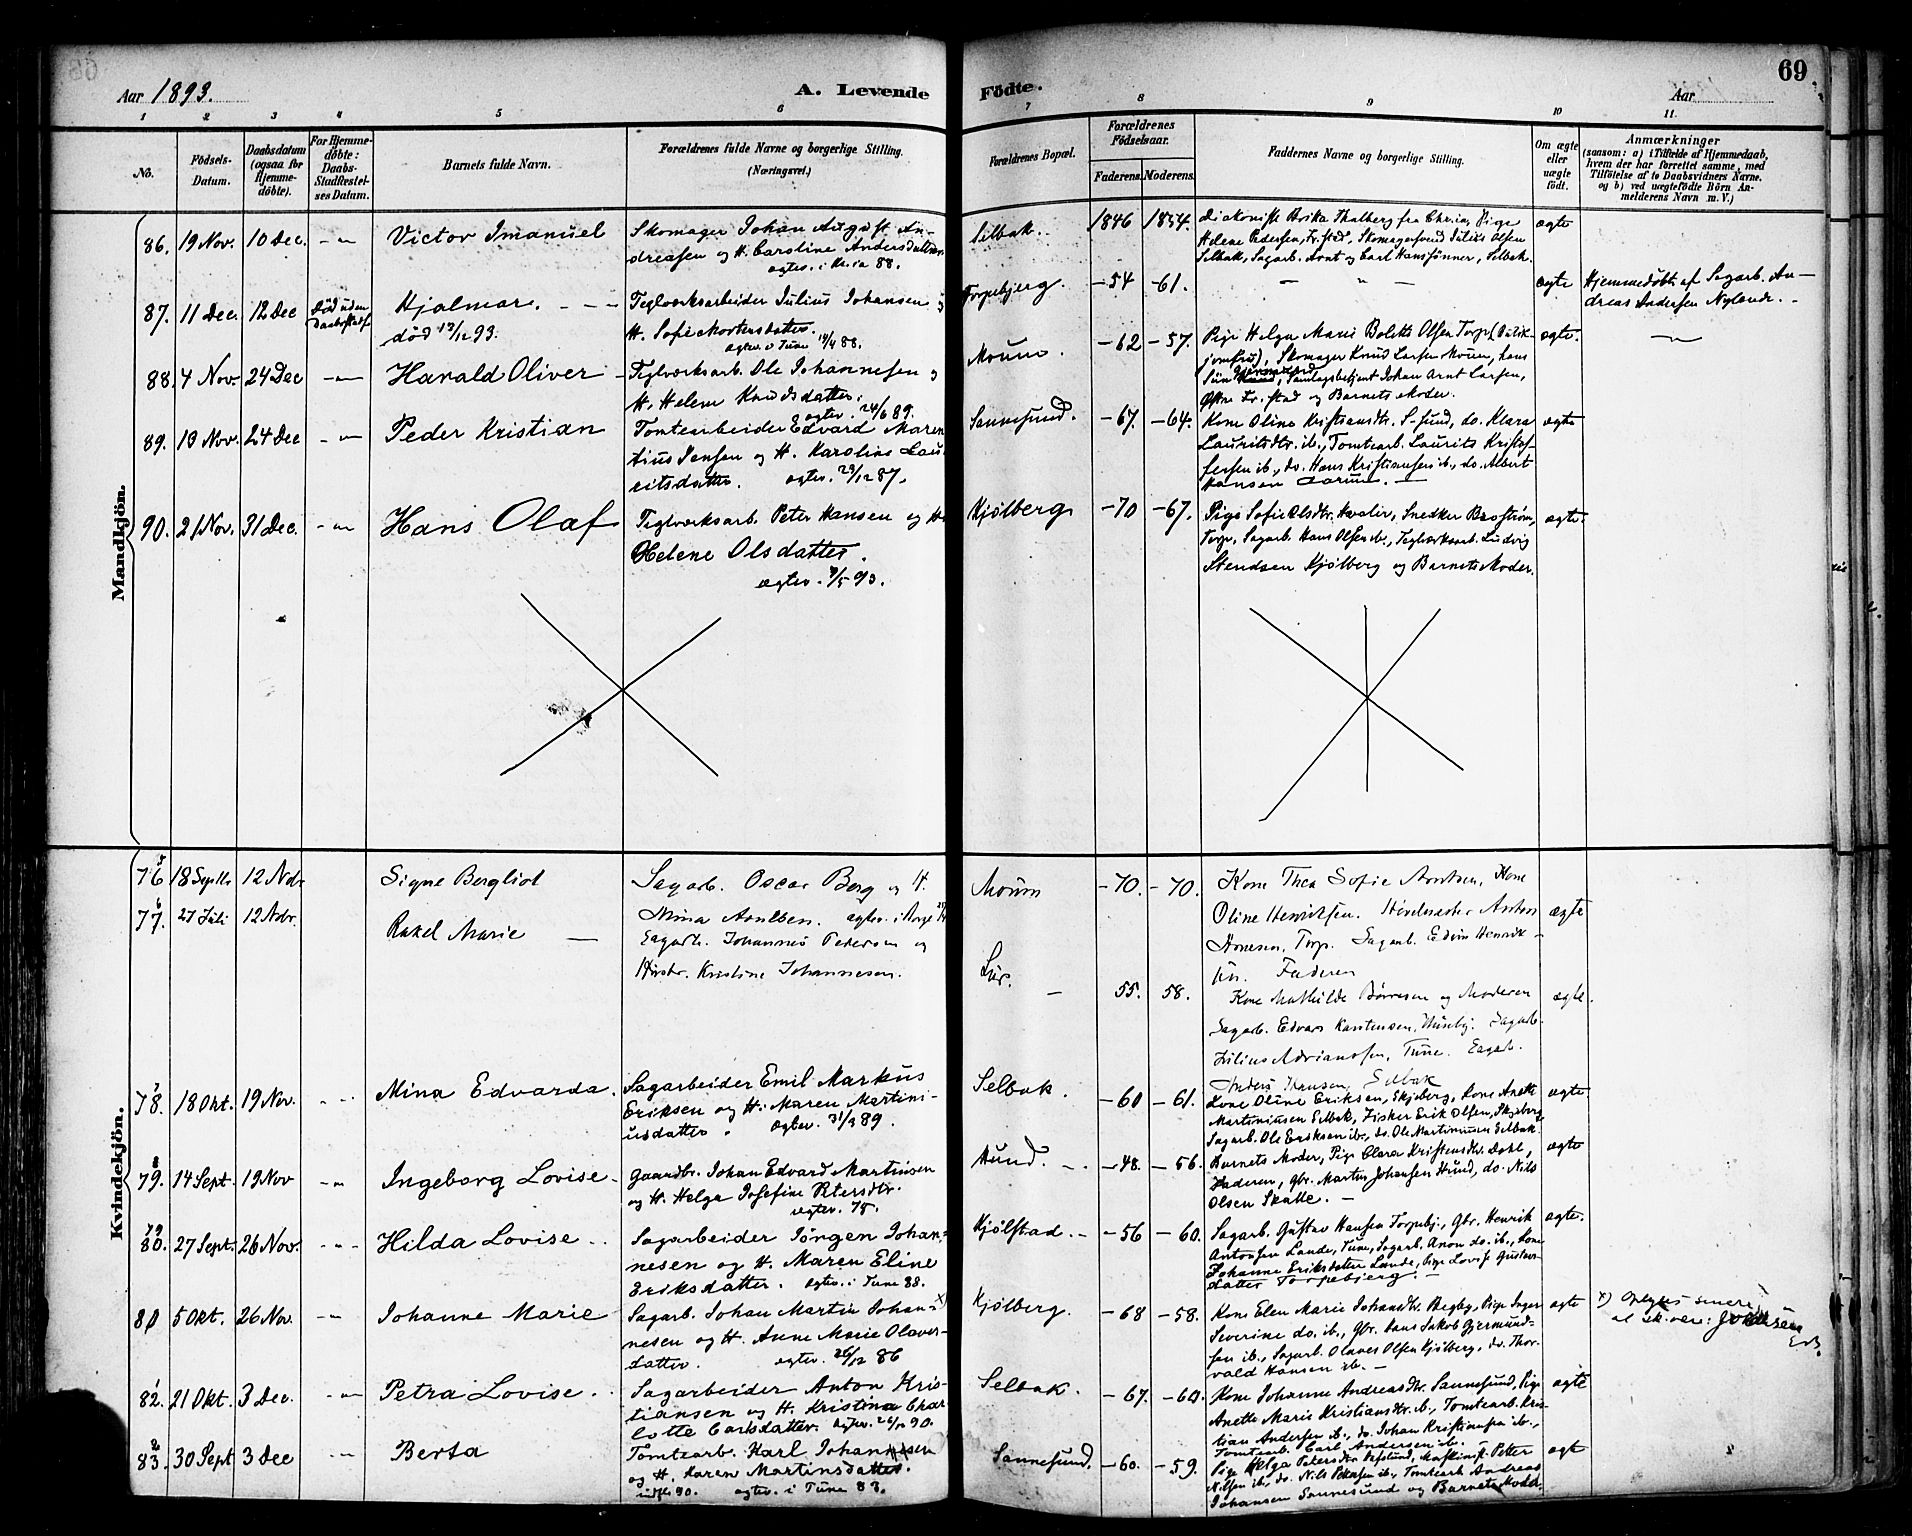 Aar 1893.
A. Levende
Födte.
69
Aar
1 2 3 4 5 6 7 8 9 10 11.
No.
Födsels-
Datum.
Daabsdatum
(ogsaa for
Hjemme-
döbte).
For Hjemme-
döbte:
Daabs-
Stadfæstel-
ses Datum.
Barnets fulde Navn.
Forældrenes fulde Navne og borgerlige Stilling.
(Næringsvei.)
Forældrenes Bopæl.
Forældrenes
Födselsaar.
Faderens. Moderens.
Faddernes Navne og borgerlige Stilling.
Om ægte
eller
uægte
født.
Anmærkninger
(saasom: a) i Tilfælde af Hjemmedaab,
hvem der har forrettet samme, med
Tilföielse af to Daabsvidners Navne.
og b) ved uægtefödte Börn An-
melderens Navn m. V.)
Mandkjön.
86. 19 Nov. 10 Dec. Victor Imanuel
Skomager Johan August An-
dreasen og H. Caroline Andersdatter
ægtev. i Kr.ia 88.
Selbak. 1846 1854.
Diakonisse Brika Thalberg fra Chr.ia, Pige
Helene Pedersen, Fr.stad, Skomagersvend Julius Olsen
Selbak, Sagarb. Arnt og Carl Hanssønner, Selbak.
ægte
87. 11 Dec. 12 Dec Død uden
Daabsstadf.
Hjalmar.
død 12/12 93.
Teglværksarbeider Julius Johansen og
H. Sofie Mortensdatter.
ægtev. i Tune 14/4 88.
Torpebjerg. -54 -61.
ægte
Hjemmedøbt af Sagarb. An-
dreas Andersen Nyland.
88. 4 Nov. 24 Dec Harald Oliver
Teglværksarb. Ole Johannesen og
H. Helene Knudsdatter.
ægtev. 24/6 89.
Moum. -62 -57.
Pige Helga Marie Bolette Olsen Torp (Butik-
jomfru), Skomager Knud Larsen Moum, hans
Søn, Samlagsbetjent Johan Arnt Larsen,
Østre Fr.stad og Barnets Moder.
ægte.
89. 10 Nov. 24 Dec Peder Kristian
Tomtearbeider Edvard Maren
tius Jensen og H. Karoline Lau-
ritsdatter. ægtev. 29/12 87.
Sannesund. -67. -64.
Kone Oline Kristiansdtr. S-sund, do. Klara
Lauritsdtr. ib., Tomtearb. Laurits Kristof-
fersen ib., do. Hans Kristiansen ib., do. Albert
Hansen Aarum.
ægte
90. 21 Nov. 31 Dec. Hans Olaf
Teglværksarb. Peter Hansen og H.
Helene Olsdatter.
ægtev. 7/5 93.
Kjølberg -70 -67.
Pige Sofie Olsdtr. Hvaler, Snedker Broström,
Torp, Sagarb. Hans Olsen ib., Teglværksarb. Ludvig
Stendsen Kjølberg og Barnets Moder.
ægte.
Kvindekjön.
76 18 Septb 12 Nobr Signe Bergliot
Sagarb. Oscar Berg og H.
Mina Arnlsen. ægtev. i Borge
Moum -70. -70.
Kone Thea Sofie Arntsen, Kone
Oline Henriksen.
Torp. Sagarb. Edvin Henrik-
sen. Faderen
ægte
77. 27 Juli 12 Nobr. Rakel Marie
Sagarb. Johannes Pedersen og
Hustr. Kristine Johannesen.
Lur. 55. 58.
Kone Mathilde Børresen og Moderen
Sagarb. Edvard Karstensen, Huseby. Sagarb.
Julius Adriansen, Tune. Sagarb.
Anders Jensen, Selbak
ægte.
78. 18 Okt. 19 Nov. Mina Edvarda.
Sagarbeider Emil Markus
Eriksen og H. Maren Martini-
usdatter. ægtev. 31/3 89.
Selbak. -60 -61.
Kone Oline Eriksen, Skjeberg, Kone Anette
Martiniusen Selbak, Fisker Erik Olsen, Skjeberg
Sagarb. Ole Eriksen ib., do. Ole Martiniusen Selbak.
ægte.
79. 14 Sept. 19 Nov Ingeborg Lovise
Gaardbr. Johan Edvard Martinsen
og H. Helga Josefine Petersdtr.
ægtev. 75.
Hund. -48. -56.
Barnets Moder, Pige Clara Kristensdtr. Dahl,
Faderen, Gbr. Martin Johansen Hund, do. Nils
Olsen Skatte.
ægte
79
80. 27 Sept. 26 Nov. Hilda Lovise
Sagarbeider Jörgen Johan-
nesen og H. Maren Eline
Eriksdatter. ægtev. i Tune 88.
Kjølstad. -56 -60.
Sagarb. Gustav Hansen Torpebj., Gbr. Henrik
Antonsen Lande, Tune, Sagarb. Anon do. ib., Kone
Johanne Eriksdatter Lande, Pige Lovise Gustavs-
datter Torpebjerg.
ægte.
80 5 Okt. 26 Nov. Johanne Marie
Sagarb. Johan Martin Johan- x)
nesen og H. Anne Marie Olaves-
datter. ægtev. 26/12 86
Kjølberg. -68 -58.
Kone Elen Marie Johansdtr. Begby, Pige Inger
Severine do. ib., Gbr. Hans Jakob Gjermund-
sen ib., Sagarb. Olaves Olsen Kjølberg, do. Thor-
vald Hansen ib.
ægte
x) Opgives senere
at skrive:
82. 21 Okt. 3 Dec. Petra Lovise
Sagarbeider Anton Kris-
tiansen og H. Kristina Char
lotte Carlsdatter. ægtev. 26/12 90.
Selbak. -67. -60.
Kone Johanne Andreasdtr. Sannesund, Pige
Anette Marie Kristiansdtr. ib., Tomtearb. Kris-
tian Andersen ib., do. Johan Kristiansen ib.,
Tomtearb. Carl Andersen ib.
ægte
83. 30 Sept 3 Dec Berta
Tomtearb. Karl Johansen
og H. Karen Martinsdatter.
indfl. 90. ægtev. i Tune 83.
Sannesund. -60. -59.
Pige Helga Petersdtr, Maskinist Petter
Nilsen ib., do. Nils Pettersen ib., Tomtearb Andreas
Johansen Sannesund og Barnets Moder.
ægt